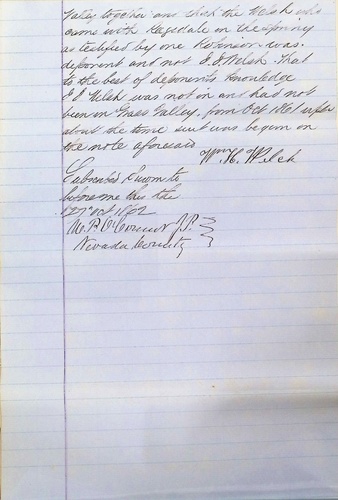 Valley together and that the Welsh who
came with Ragsdale in the Spring
as testified by one Robinson was
deponent and not J. J. Welsh. That
to the best of deponents knowledge
Welsh was not in and had not
been in Grass Valley, from Oct 1861 up
about the time suit was begun on
the note aforesaid
Wm. H. Welch
Subscribed & sworn to
before me this the
27th Oct 1862
M. P. O'Connor J.P.
Nevada County